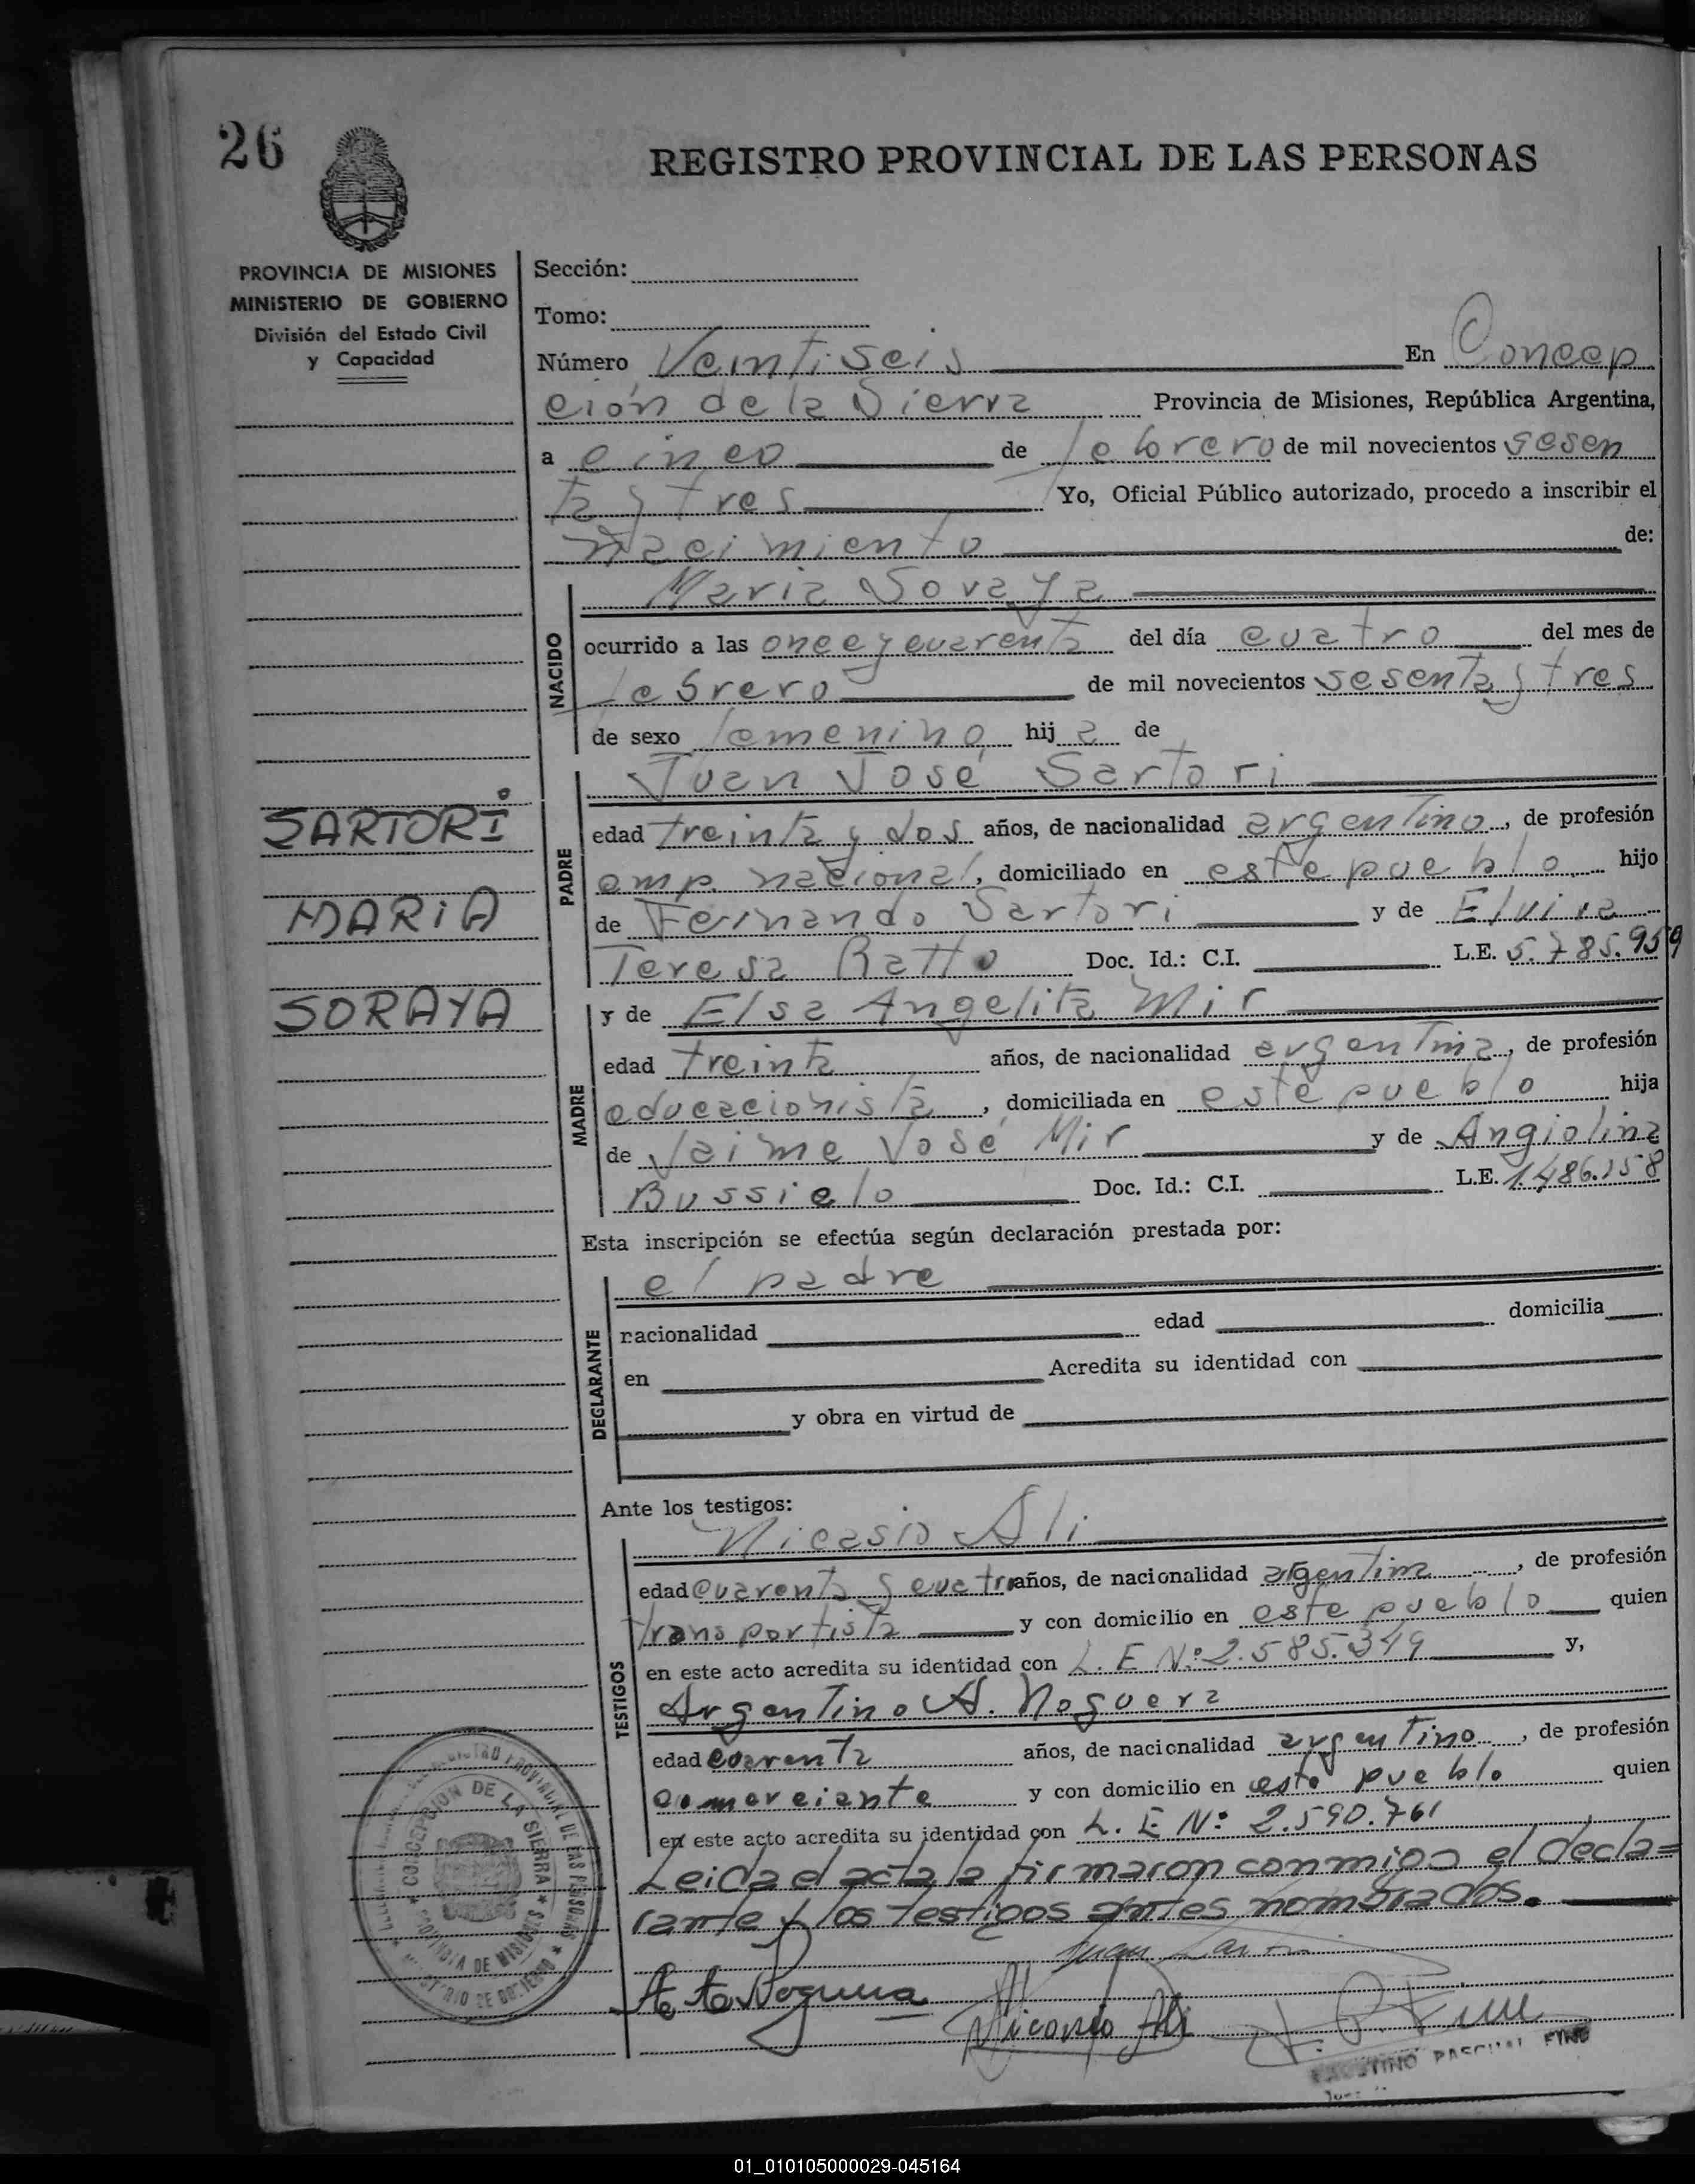 26
REGISTRO PROVINCIAL DE LAS PERSONAS
PROVINCIA DE MISIONES
MINISTERIO DE GOBIERNO
División del Estado Civil
y Capacidad
Sección:
Tomo:
Número Veintiseis En Concep
ción de la Sierra Provincia de Misiones, República Argentina,
a cinco de febrero de mil novecientos sesen
ta y tres Yo, Oficial Público autorizado, procedo a inscribir el
nacimiento de:
NACIDO
Maria Soraya
ocurrido a las once y cuarenta del día cuatro del mes de
febrero de mil novecientos sesenta y tres
de sexo femenino hij a de
PADRE
Juan José Sartori
SARTORI
edad treinta y dos años, de nacionalidad argentino, de profesión
emp. nacional, domiciliado en este pueblo hijo
MARIA
de Fernando Sartori y de Elvira
Teresa Ratto Doc. Id.: C.I. L.E. 5.785.959
SORAYA
MADRE
y de Elsa Angelita Mir
edad treinta años, de nacionalidad argentina, de profesión
educacionista, domiciliada en este pueblo hija
de Jaime José Mir y de Angiolina
Bussielo Doc. Id.: C.I. L.E. 1.486.158
Esta inscripción se efectúa según declaración prestada por:
DECLARANTE
el padre
nacionalidad edad domicilia
en Acredita su identidad con
y obra en virtud de
Ante los testigos:
TESTIGOS
Nicasio Ali
edad cuarenta y cuatro años, de nacionalidad argentina, de profesión
transportista y con domicilio en este pueblo quien
en este acto acredita su identidad con L. E Nº 2.585.349 y,
Argentino A. Noguera
edad cuarenta años, de nacionalidad argentino, de profesión
comerciante y con domicilio en este pueblo quien
en este acto acredita su identidad con L. E Nº 2.590.761
Leida el acta la firmaron conmigo el decla=
rante y los testigos antes nombrados.
CONCEPCION DE LA SIERRA
PROVINCIA DE MISIONES
REGISTRO PROVINCIAL DE LAS PERSONAS
MINISTERIO DE GOBIERNO
A. A. Noguera
Nicasio Ali
FAUSTINO PASCUAL FINO
01_010105000029-045164